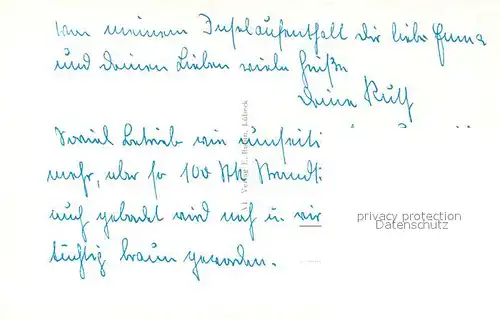 von meinem Inselaufenthalt Dir liebe Emma
und Deinen Lieben viele Grüße
Deine Ruth
Soviel Betrieb wie
mehr, aber so 100 Stk Strand
auch gebadet wird noch u. wir
tüchtig braun geworden.
Verlag Lübeck
privacy protection
Datenschutz